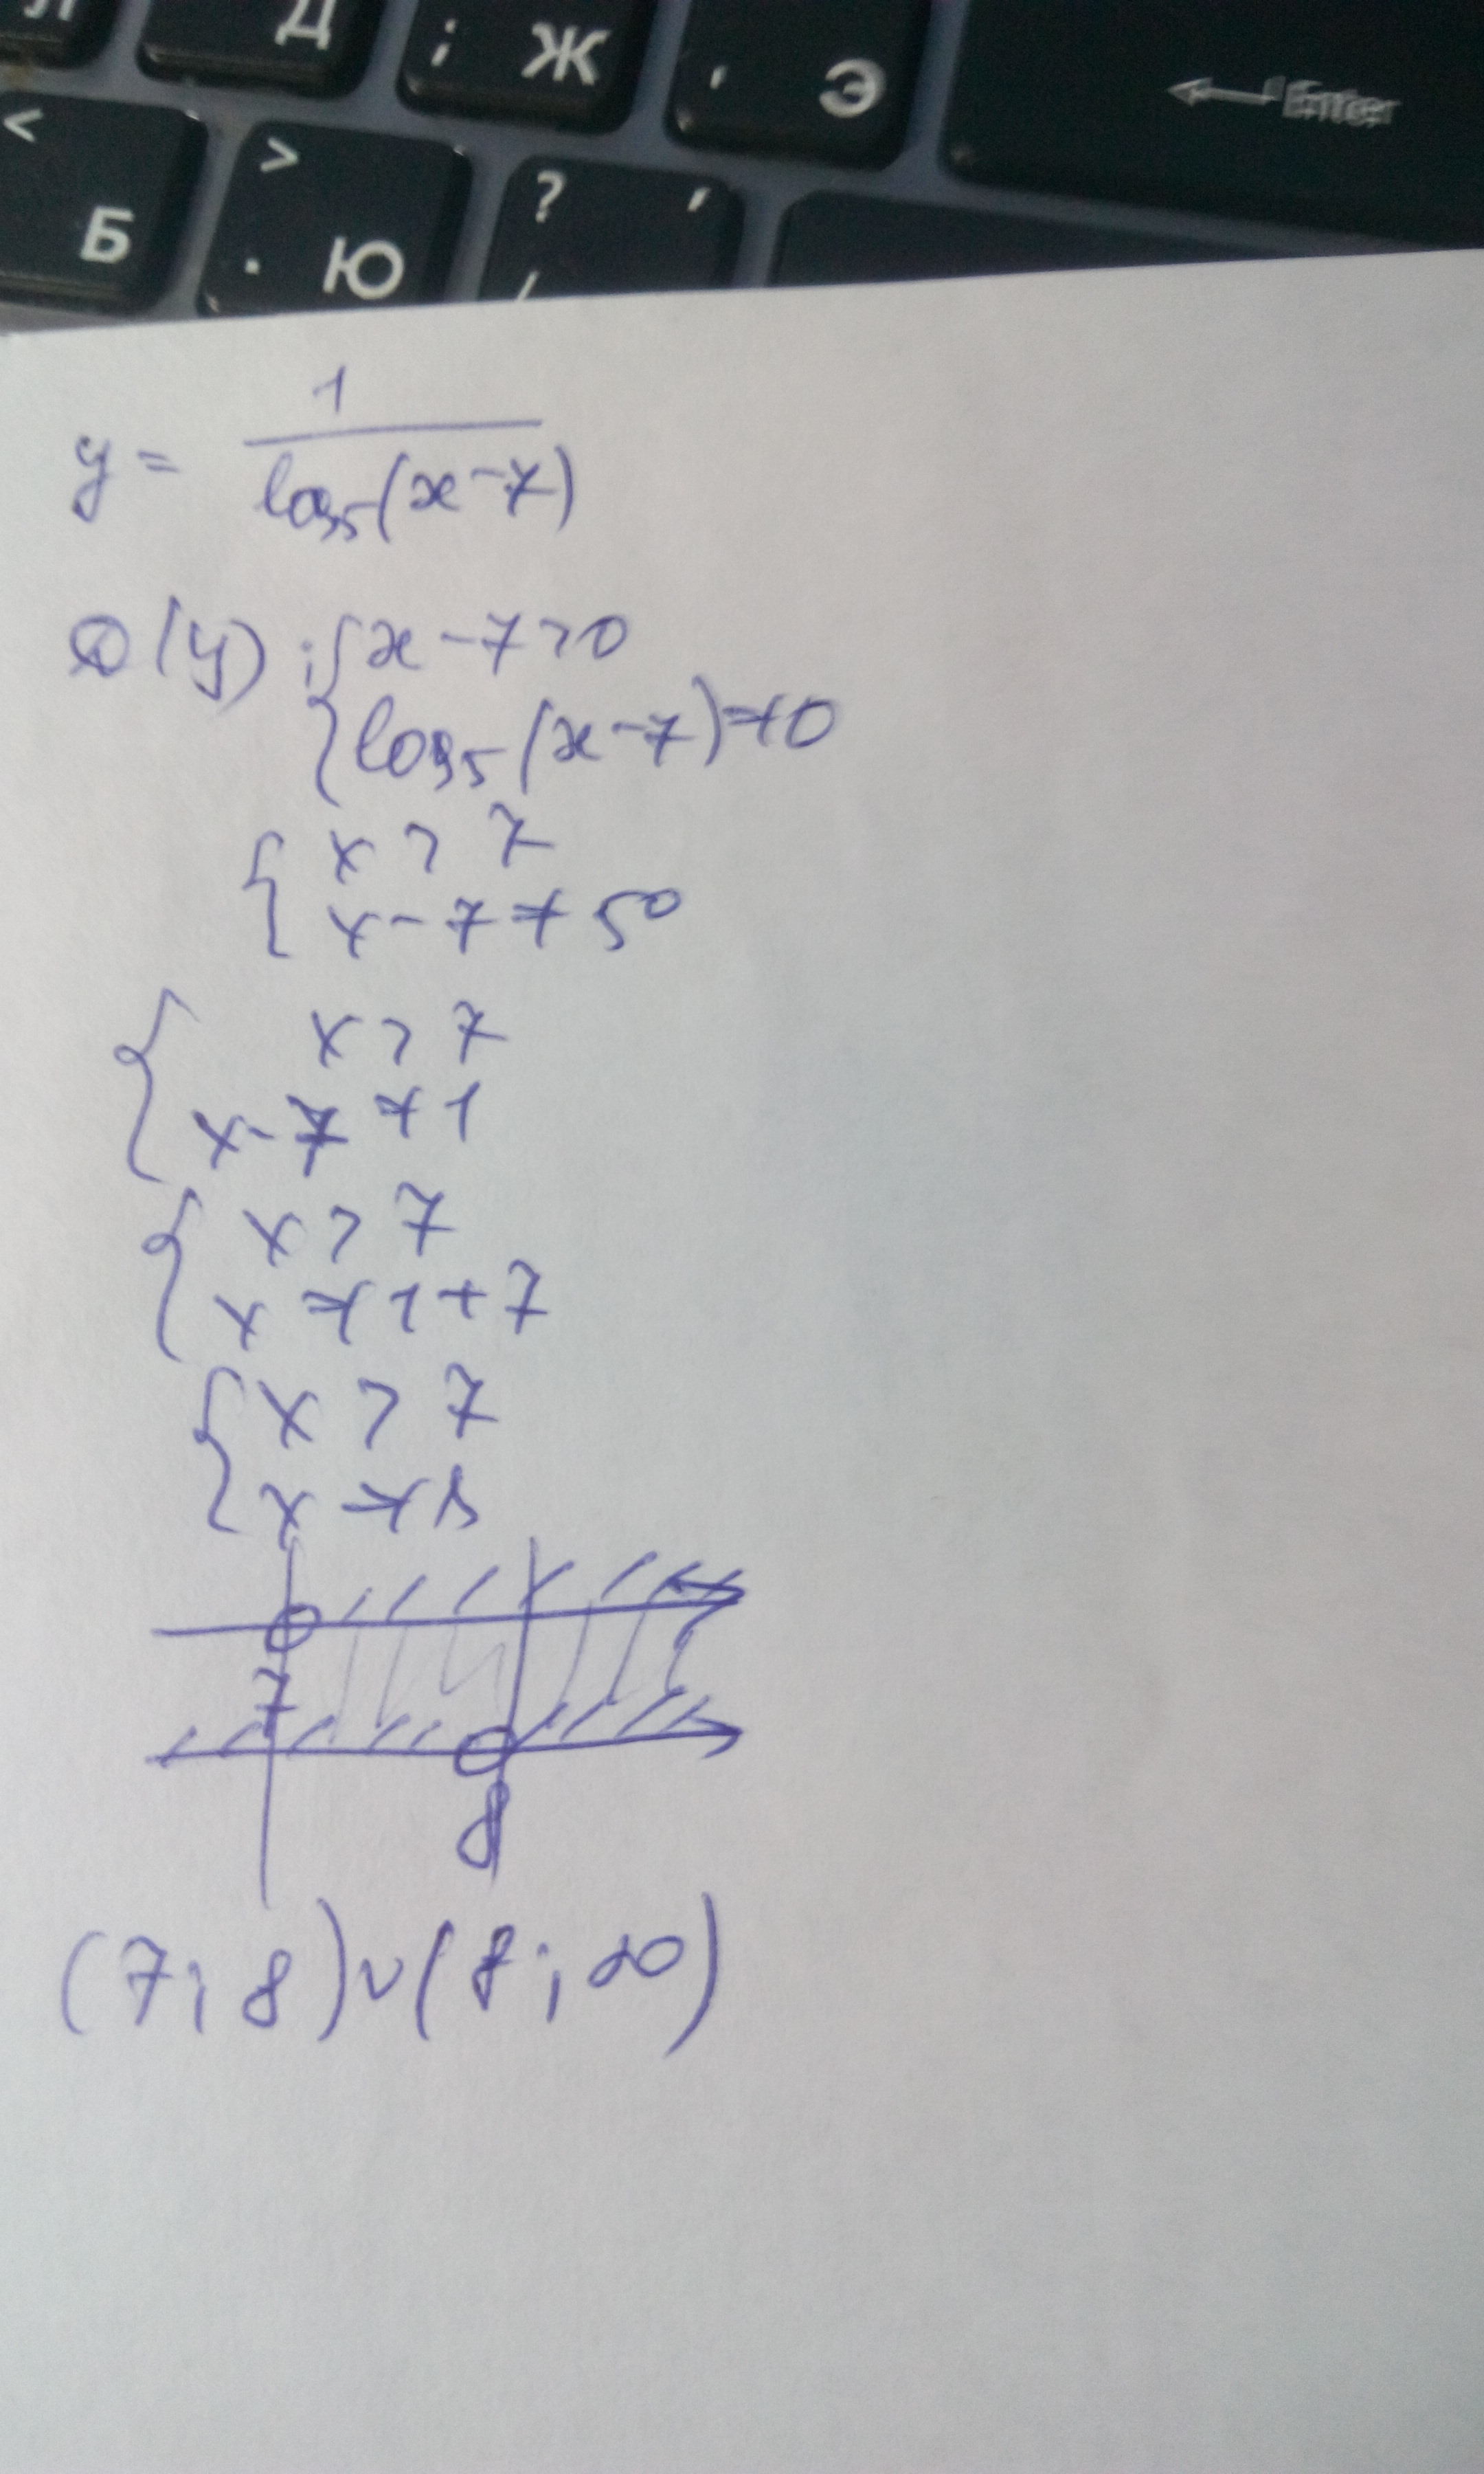 Д ; Ж ' Э Enter
< Б > . Ю ? ,
y = 1 / log₅(x-7)
D(y): { x-7>0
{ log₅(x-7)≠0
{ x > 7
x-7≠5⁰
{ x > 7
x-7≠1
{ x > 7
x≠1+7
{ x > 7
x≠8
7
8
(7;8)∪(8;∞)